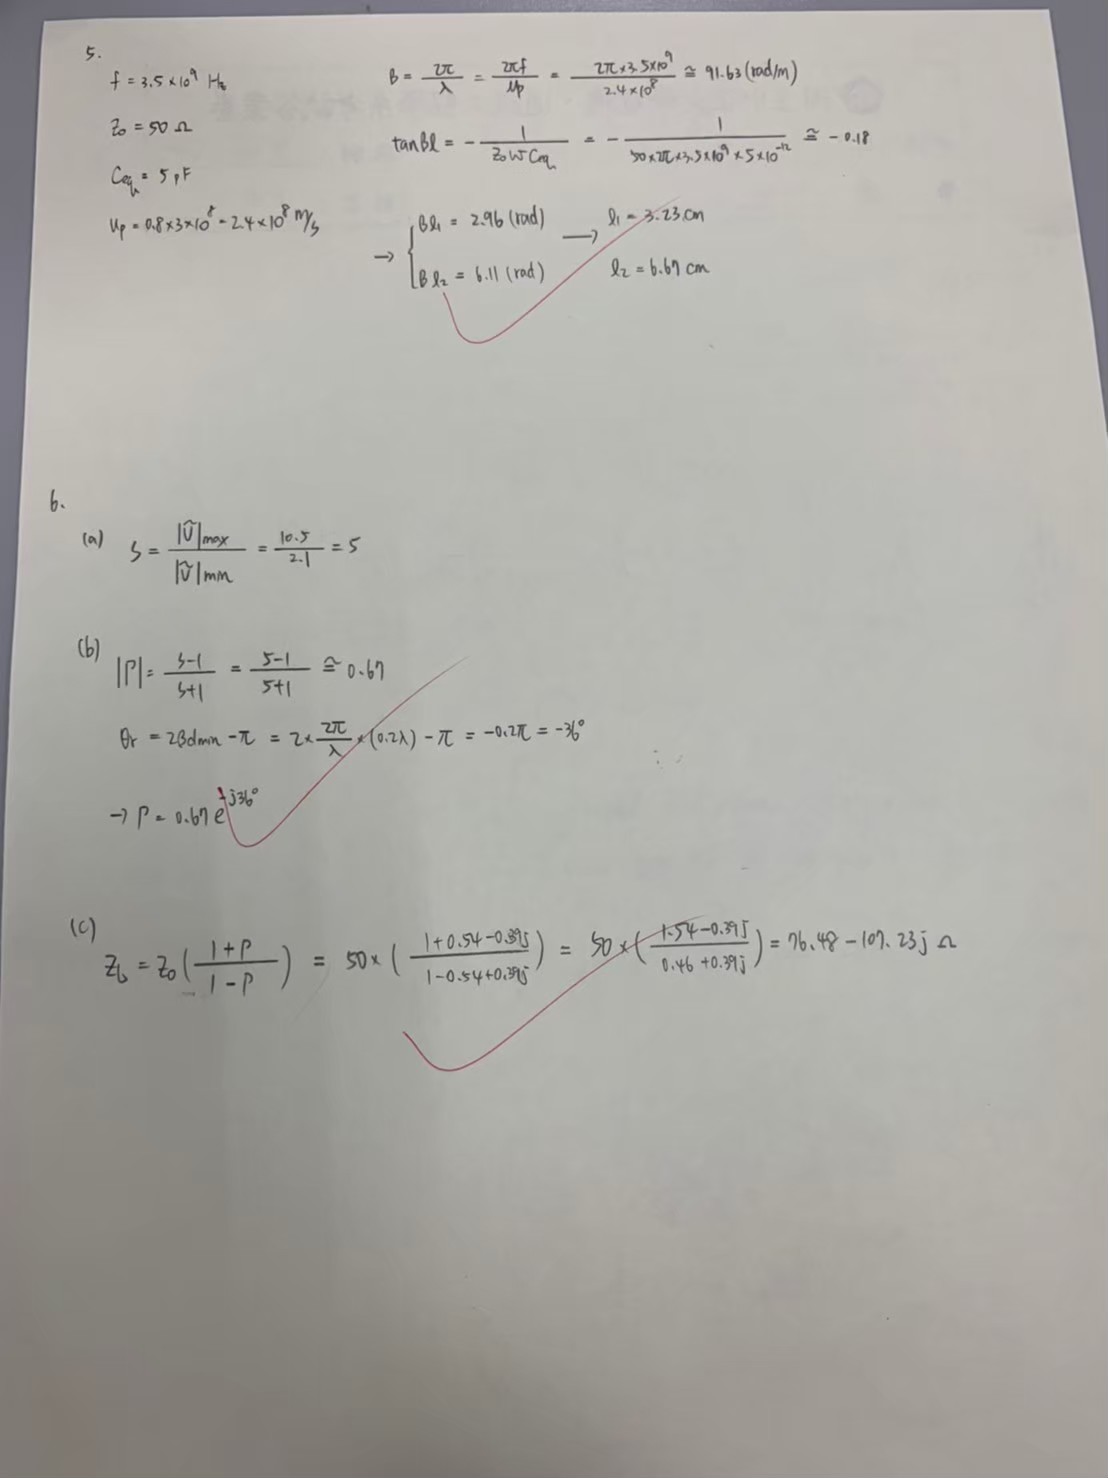 5.
f = 3.5×10⁹ Hz
Z₀ = 50 Ω
Ceq = 5 pF
Up = 0.8×3×10⁸ = 2.4×10⁸ m/s
B = 2π/λ = 2πf/Up = 2π×3.5×10⁹/2.4×10⁸ ≅ 91.63 (rad/m)
tanBl = - 1/Z₀WCeq = - 1/50×2π×3.5×10⁹×5×10⁻¹² ≅ -0.18
→ { Bl₁ = 2.96 (rad) → l₁ = 3.23 cm
Bl₂ = 6.11 (rad) l₂ = 6.67 cm
6.
(a) S = |Ṽ|max/|Ṽ|min = 10.5/2.1 = 5
(b) |Γ| = S-1/S+1 = 5-1/5+1 ≅ 0.67
θr = 2βdmin - π = 2×2π/λ×(0.2λ) - π = -0.2π = -36°
→ Γ = 0.67 e^-j36°
(c) ZL = Z₀(1+Γ/1-Γ) = 50×(1+0.54-0.39j/1-0.54+0.39j) = 50×(1.54-0.39j/0.46+0.39j) = 76.48-107.23j Ω